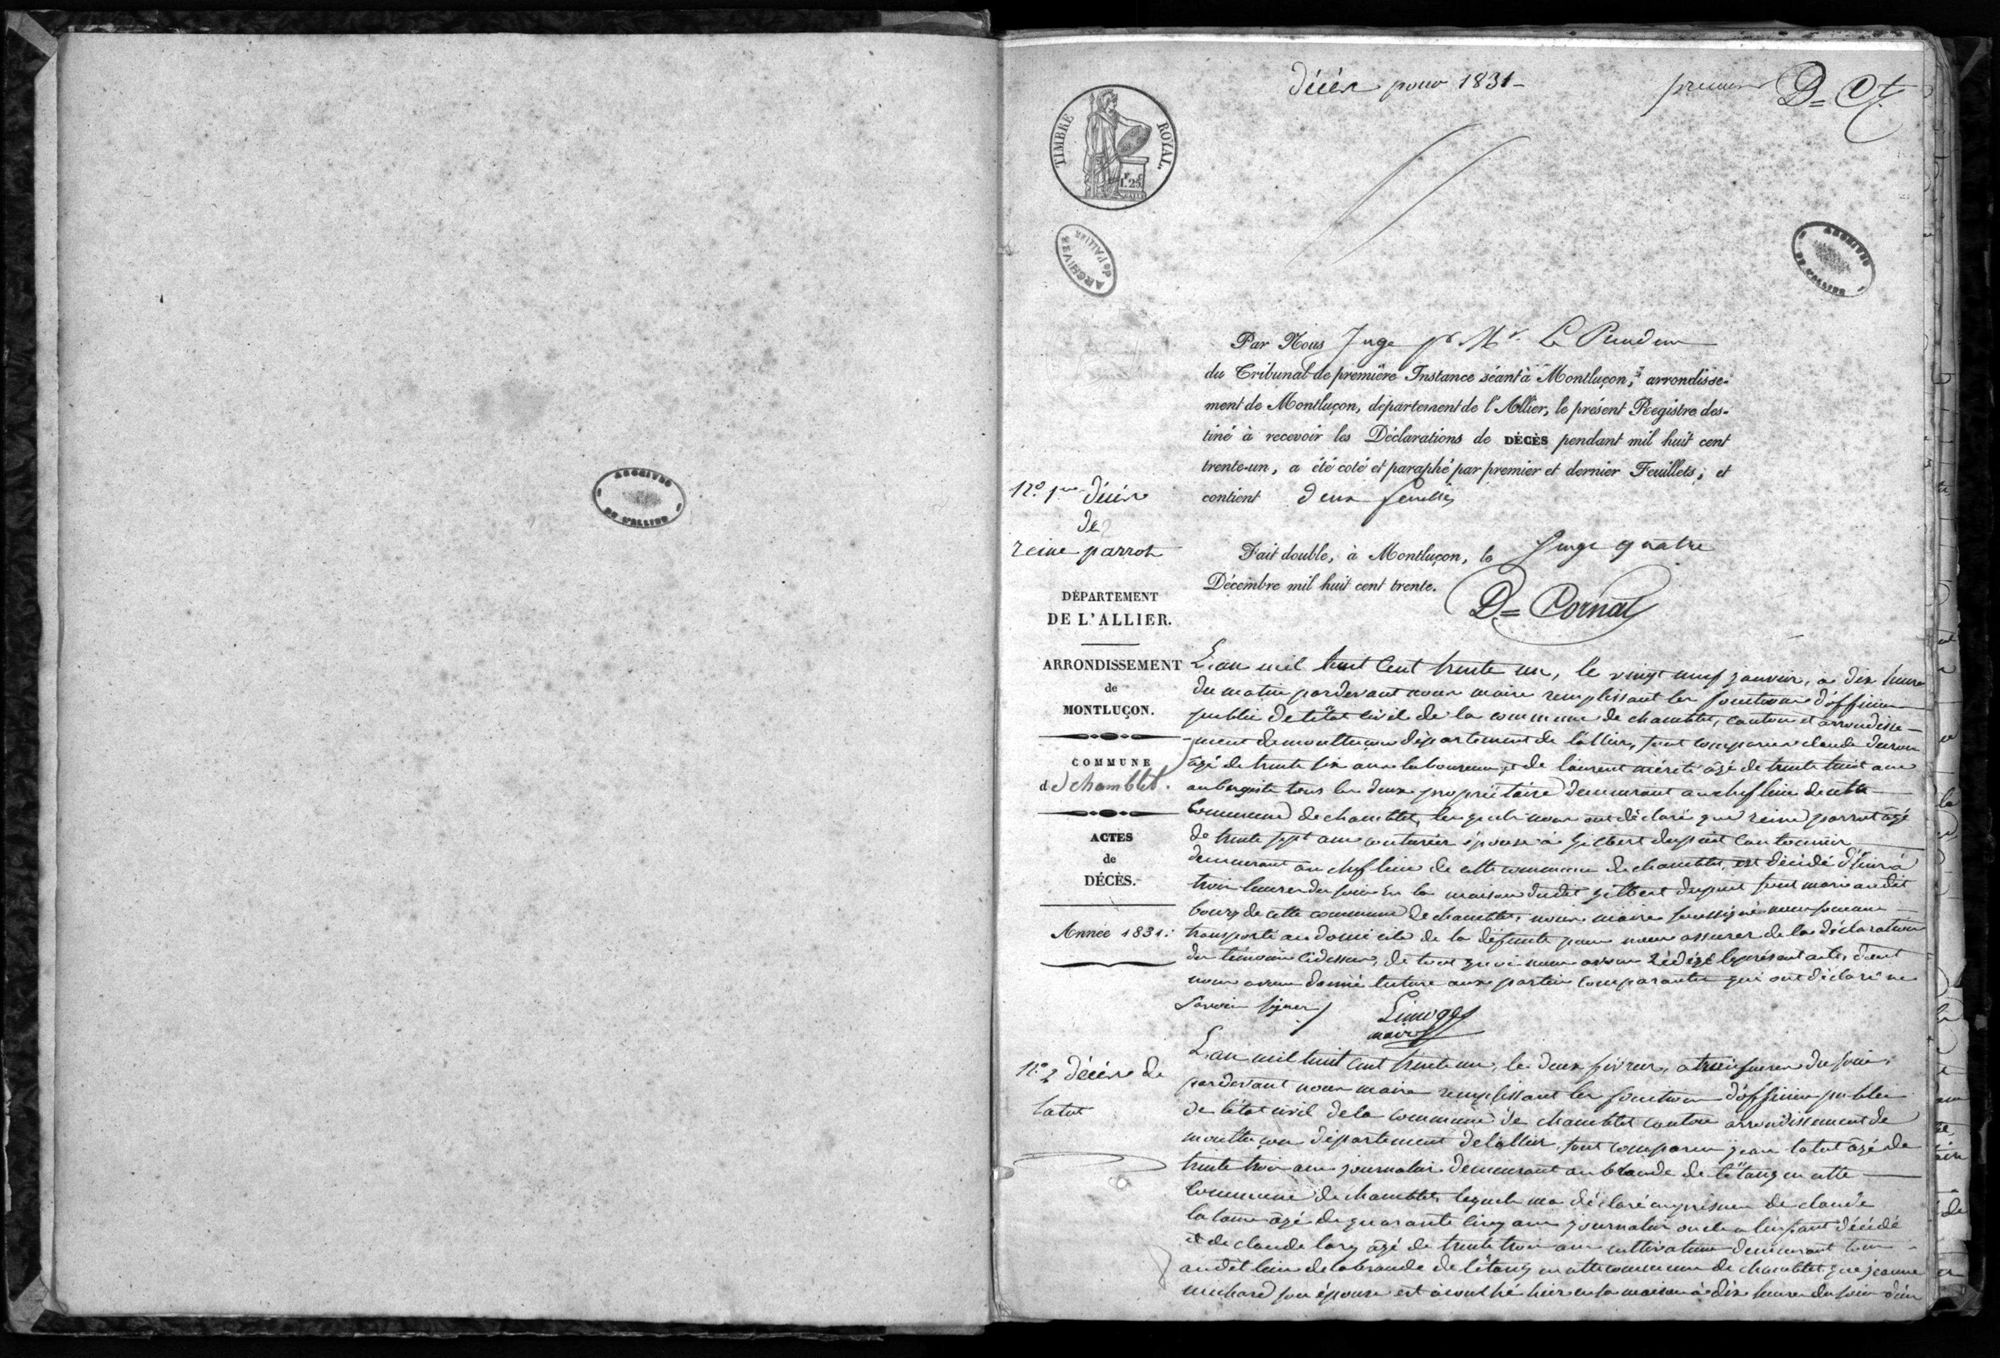 décès pour 1831
premier D= Ct.
TIMBRE ROYAL
1.25
ARCHIVES de l'ALLIER
ARCHIVES DE L'ALLIER
ARCHIVES DE L'ALLIER
Par Nous Juge pr Mr Le President
du Tribunal de première Instance séant à Montluçon, arrondisse-
ment de Montluçon, département de l'Allier, le présent Registre des-
tiné à recevoir les Déclarations de DÉCÈS pendant mil huit cent
trente-un, a été coté et paraphé par premier et dernier Feuillets, et
contient deux feuilles
Fait double, à Montluçon, le quatre
Décembre mil huit cent trente.
D= Cornat
N.o 1er décès
de
reine parrot
DÉPARTEMENT
DE L'ALLIER.
ARRONDISSEMENT
de
MONTLUÇON.
COMMUNE
d chamblet.
ACTES
de
DÉCÈS.
Année 1831.
L'an mil huit Cent trente un, le vingt neuf janvier, a dix heures
du matin pardevant nous maire remplissant les fonctions d'officier
public de l'état civil de la commune de chamblet, canton et arrondisse-
ment de montluçon département de l'allier, sont comparus claude
âgé de trente six ans laboureur, et de laurent mérite âgé de trente huit ans
aubergiste tous les deux propriétaire demeurant au chef lieu de cette
Commune de chamblet, lesquels nous ont déclaré que reine parrot âgé
de trente sept ans couturière épouse à Gilbert dupuit Cantonnier
demeurant au chef lieu de cette commune de chamblet, est décédé d'hier à
trois heures du soir en la maison dudit gilbert dupuit sont mari audit
bourg de cette commune de chamblet, nous maire soussigné nous sommes
transporté au domicile de la défunte pour nous assurer de la déclaration
des témoins cidessus, de tout quoi nous avons rédigé le présent acte, dont
nous avons donné lecture aux parties comparantes qui ont déclaré ne
savoir signer
Limoges
maire
N.o 2 décès de
latut
L'an mil huit cent trente un, le deux février, a trois heures du soir,
pardevant nous maire remplissant les fonctions d'officier public
de l'état civil de la commune de chamblet canton arrondissement de
montluçon département de l'allier, sont comparu jean latut âgé de
trente trois ans journalier demeurant au brande de l'étang en cette
Commune de chamblet, lequel ma déclaré en présence de claude
âgé de quarante cinq ans journalier oncle a l'enfant décédé
et de claude lary âgé de trente trois ans cultivateur demeurant tous
audit lieu de la brande de l'étang en cette commune de chamblet que jeanne
michard son épouse est acouché hier en sa maison à dix heures du soir d'un